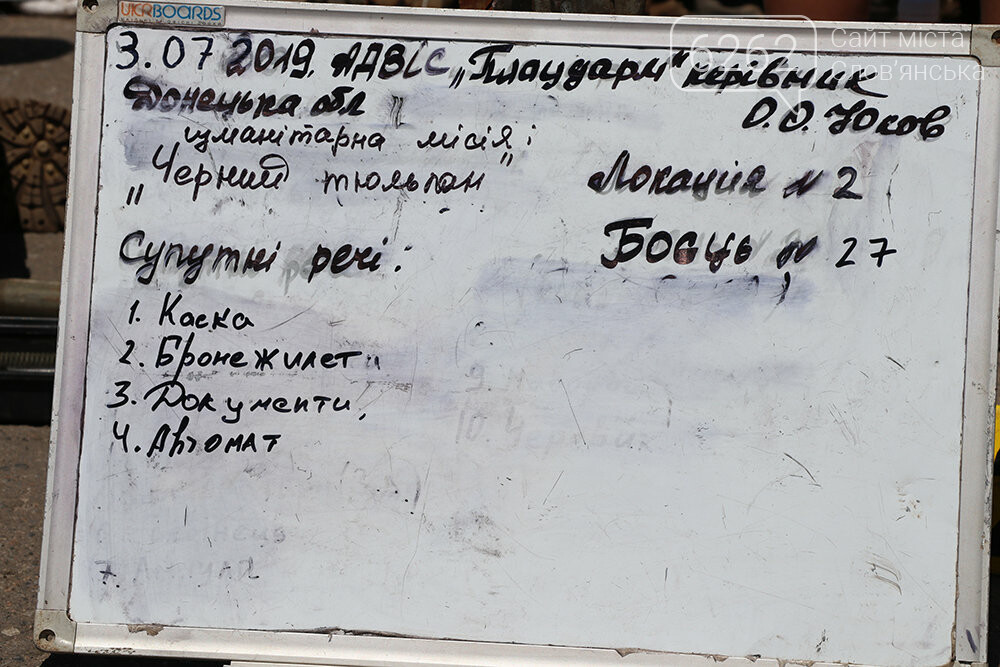 UKRBOARDS
6262 Сайт міста Слов'янська
3.07 2019. АДВІС „Плацдарм" керівник
Донецька обл О.О. Юков
гуманітарна місія:
„Черний тюльпан" Локація № 2
Супутні речі: Боєць № 27
1. Каска
2. Бронежилет
3. Документи,
4. Автомат